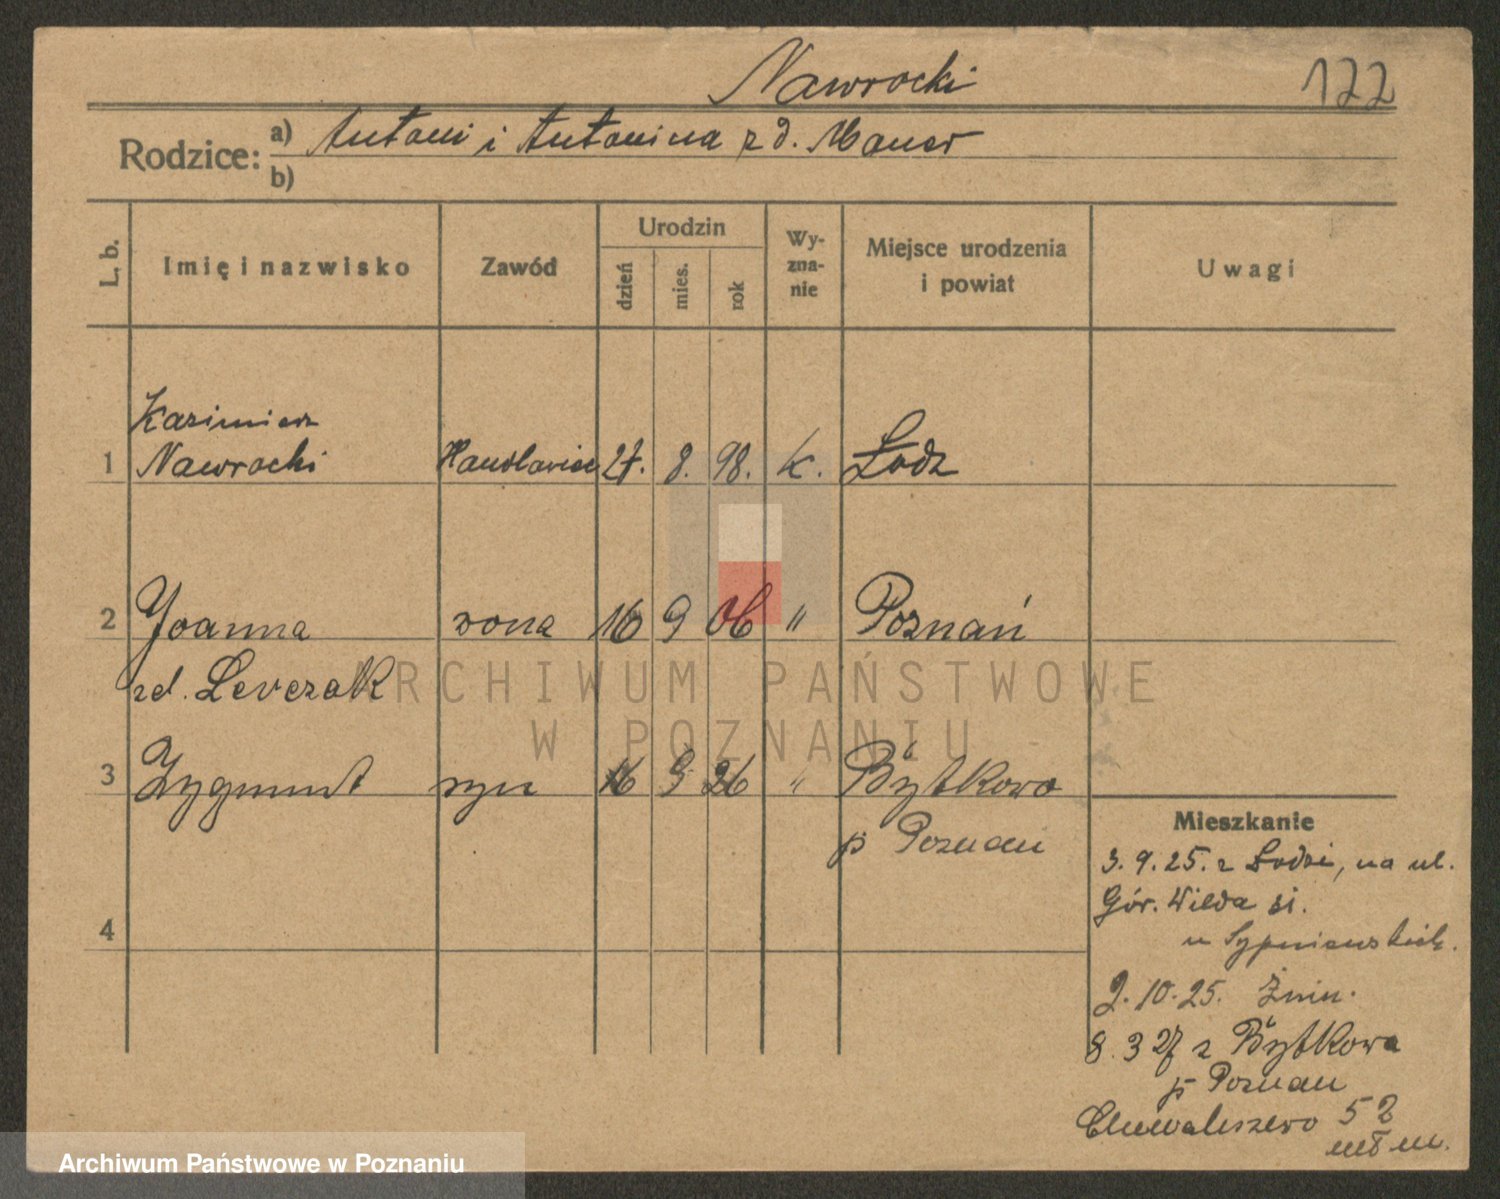 Nawrocki
122
Rodzice:
a) Antoni i Antonina z d. Maner
b)
L. b.
Imię i nazwisko
Zawód
Urodzin
dzień
mies.
rok
Wy-
zna-
nie
Miejsce urodzenia
i powiat
Uwagi
Kazimierz
1 Nawrocki Handlowiec 27. 8. 98. k. Łodz
2 Joanna zona 16 9 06 " Poznań
zd. Lewczak
3 Zygmunt syn 16 9 26 " Bytkowo
p Poznań
4
Mieszkanie
3. 9. 25. z Lodzi, na ul.
Gór. Wilda 61.
u Sypniewskich.
2. 10. 25. Żnin.
8. 3 27 z Bytkowa
p Poznan
52
ARCHIWUM PAŃSTWOWE
W POZNANIU
Archiwum Państwowe w Poznaniu